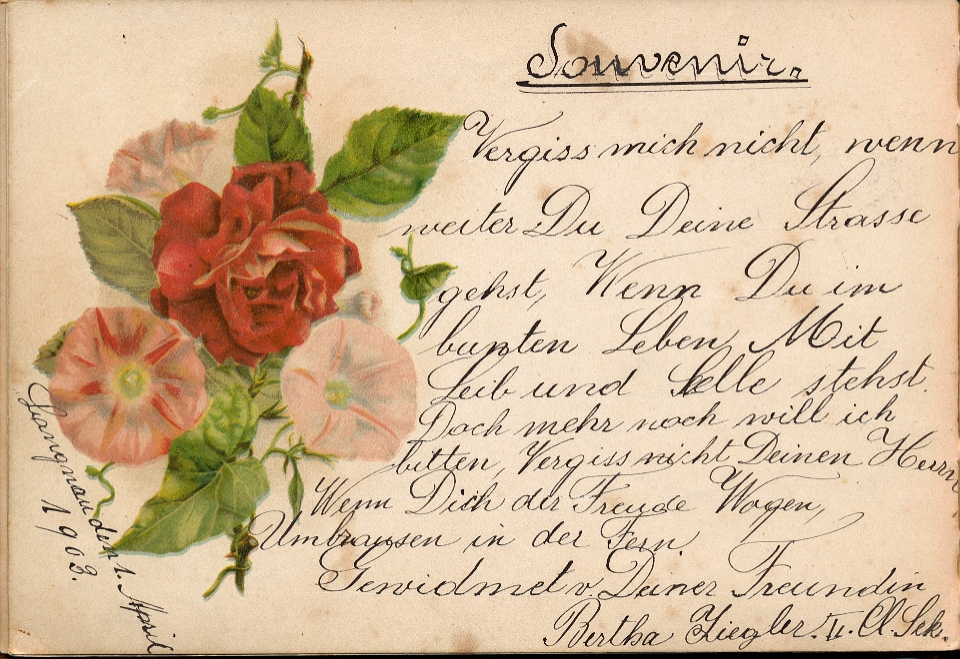 Souvenir.
Vergiss mich nicht, wenn
weiter Du Deine Strasse
gehst, Wenn Du im
bunten Leben, Mit
Leib und Selle stehst.
Doch mehr noch will ich
bitten, Vergiss nicht Deinen Herrn
Wenn Dich der Freude Wogen,
Umbrausen in der Fern.
Gewidmet v. Deiner Freundin
Bertha Ziegler. II. Cl. Sek.
Langnau den 1. April
1903.